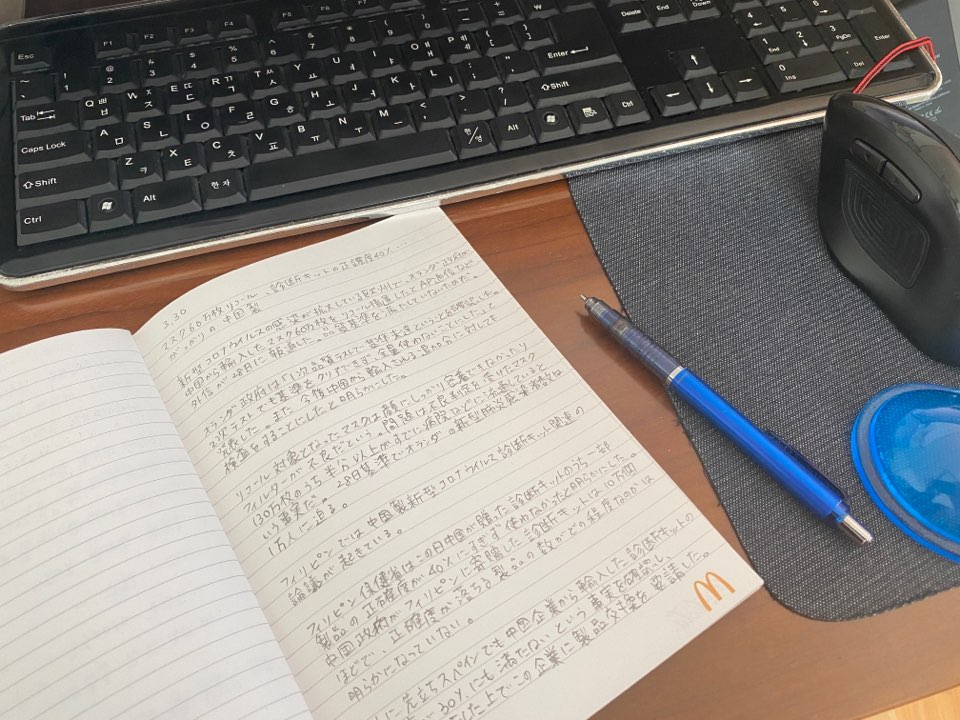 Esc F1 F2 F3 F4 F5 F6 F7
Tab Q ㅂ ㅃ W ㅈ ㅉ E ㄷ ㄸ R ㄱ ㄲ T ㅅ ㅆ Y ㅛ U ㅕ I ㅑ O ㅐ ㅒ P ㅔ ㅖ Enter
Caps Lock A ㅁ S ㄴ D ㅇ F ㄹ G ㅎ H ㅗ J ㅓ K ㅏ L ㅣ
Shift Z ㅋ X ㅌ C ㅊ V ㅍ B ㅠ N ㅜ M ㅡ Shift
Ctrl Alt 한자 한/영 Alt Ctrl
Delete End Down
1 End 2 3 PgDn Enter
0 Ins Del
3.30
マスク60万枚リコール、診断キットの正確度40%…
がっかりの中国製
新型コロナウイルスの感染が拡大している欧州で、オランダ政府が
中国から輸入したマスク60万枚をリコール措置したとAP通信など
外信が28日に報道した。品質基準を満たしていないためだ。
オランダ政府は「1次品質テストで基準未達ということを確認した。
2次テストでも基準をクリアできず、全量使わないことにした」と
発表した。また、今後中国から輸入される追加分に対しても
検査をすることにしたと明らかにした。
リコール対象となったマスクは顔にしっかり密着できなかったり
フィルターが不良だという。問題は不良判定を受けたマスク
130万枚のうち半分以上がすでに病院などに流通していると
いう事実だ。28日基準でオランダの新型肺炎感染者数は
1万人に迫る。
フィリピンでは中国製新型コロナウイルス診断キット関連の
論議が起きている。
フィリピン保健省はこの日中国が贈った診断キットのうち一部
製品の正確度が40%にすぎず使わなかったと明らかにした。
中国政府がフィリピンに寄贈した診断キットは10万個
ほどで、正確度が落ちる製品の数がどの程度なのかは
明らかになっていない。
に先立ちスペインでも中国企業から輸入した診断キットの
が30%にも満たないという事実を確認し、
した上でこの企業に製品交換を要請した。